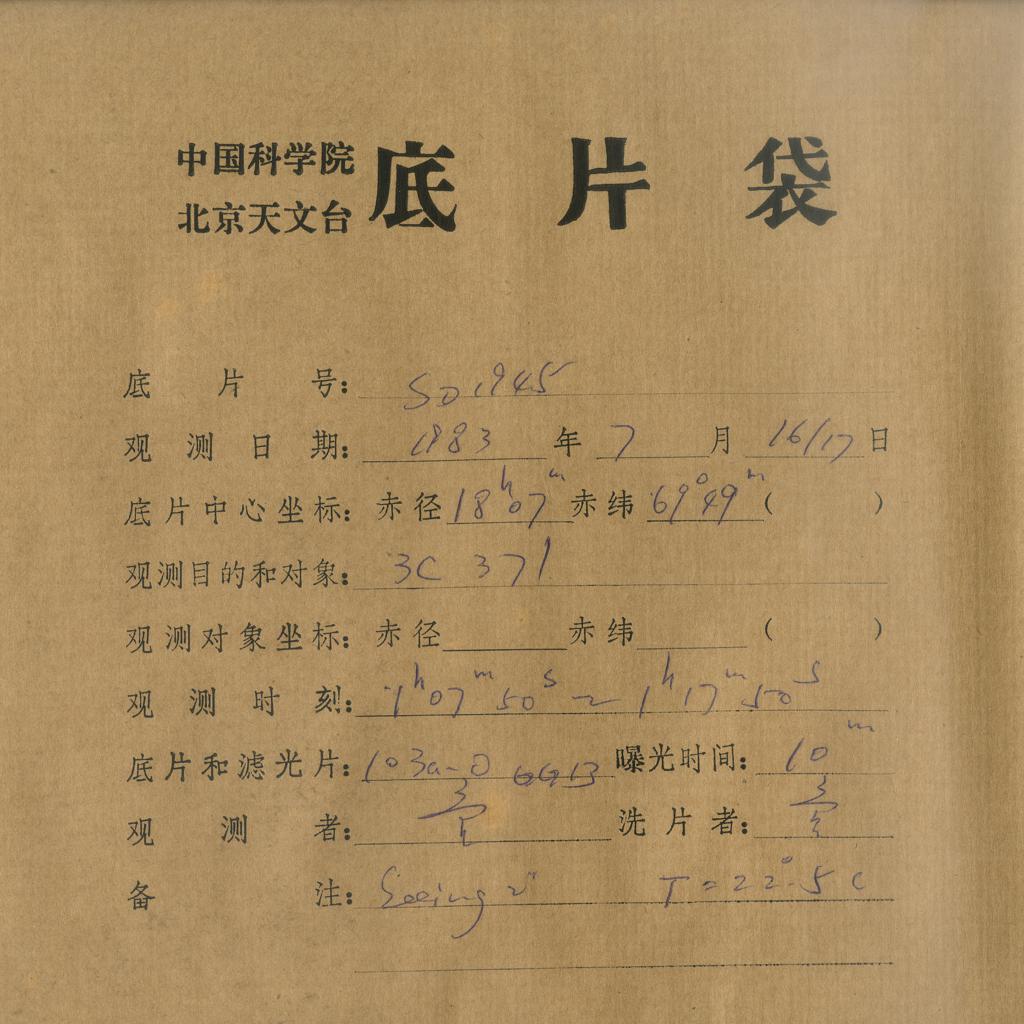 中国科学院
北京天文台
底片袋
底片号: SD 1945
观测日期: 1983 年 7 月 16/17 日
底片中心坐标: 赤径 18h07m 赤纬 69°49m ( )
观测目的和对象: 3C 371
观测对象坐标: 赤径 赤纬 ( )
观测时刻: 1h07m50s ~ 1h17m50s
底片和滤光片: 103a-O GG13 曝光时间: 10m
观测者: 洗片者:
备注: Seeing 2" T=22°.5 C